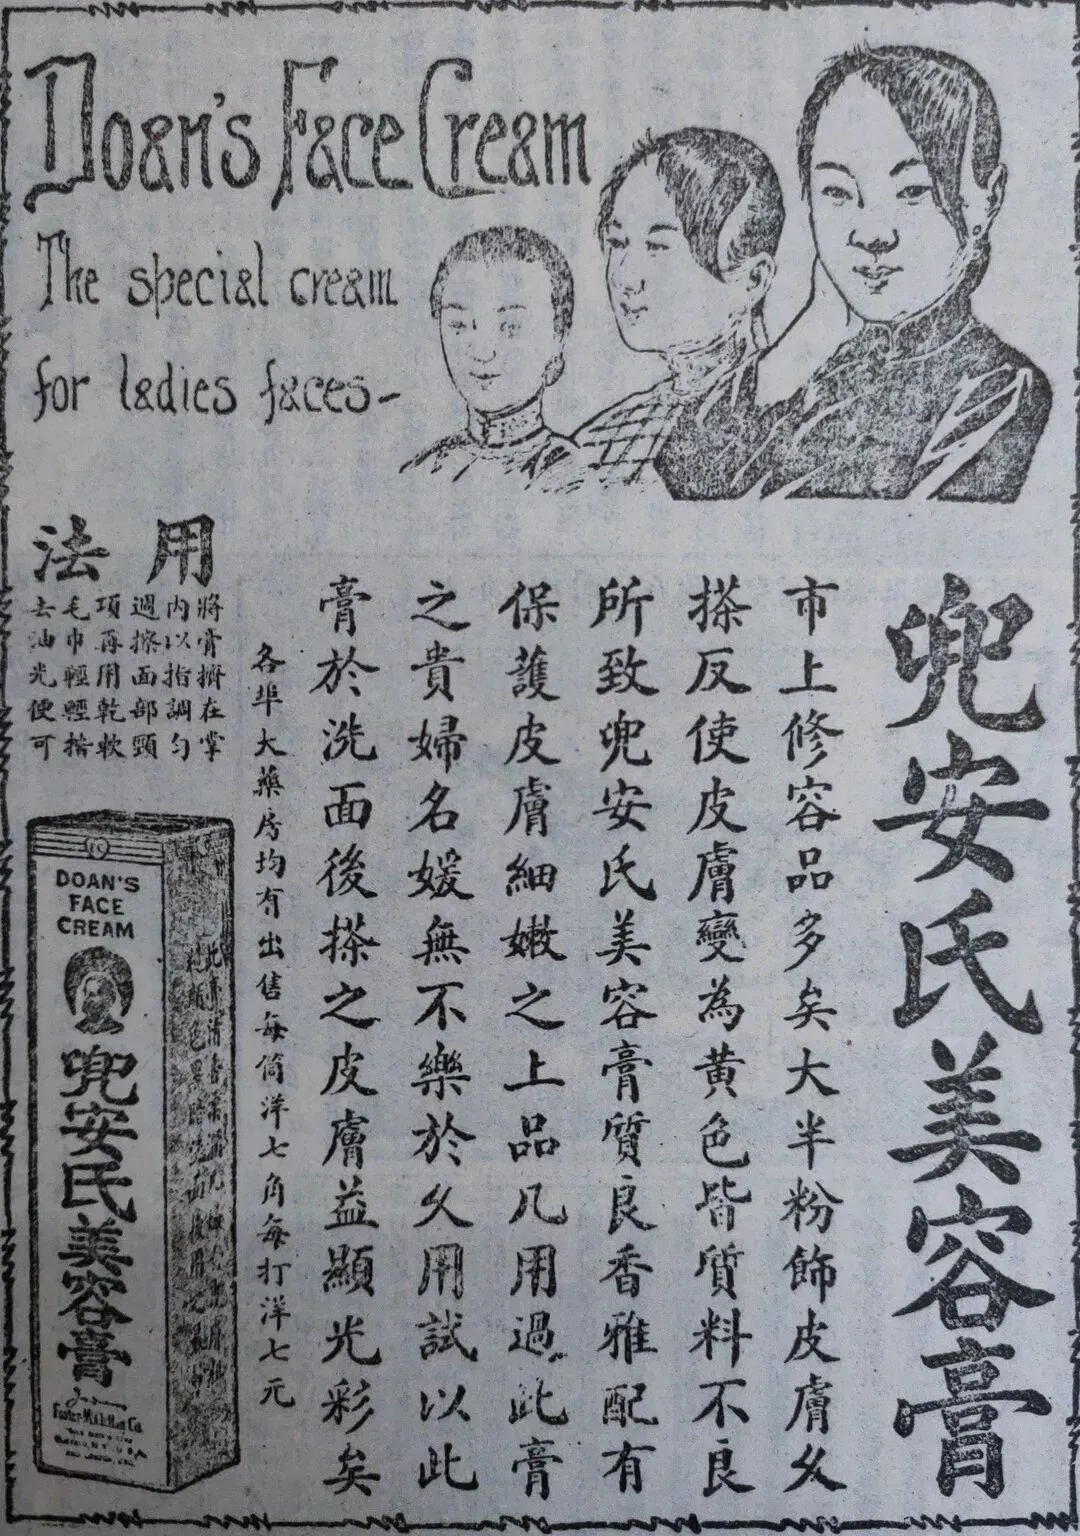 Doan's Face Cream
The special cream
for ladies faces-
兜安氏美容膏
市上修容品多矣大半粉飾皮膚久
搽反使皮膚變為黃色皆質料不良
所致兜安氏美容膏質良香雅配有
保護皮膚細嫩之上品凡用過此膏
之貴婦名媛無不樂於久用試以此
膏於洗面後搽之皮膚益顯光彩矣
各埠大藥房均有出售每筒洋七角每打洋七元
用法
將膏擠在掌
內以指調勻
週擦面部頸
項再用乾軟
毛巾輕輕揩
去油光便可
DOAN'S
FACE
CREAM
兜安氏美容膏